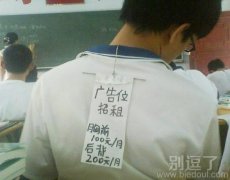 广告位
招租
胸前
100元/月
后背
200元/月
别逗了
www.biedoul.com